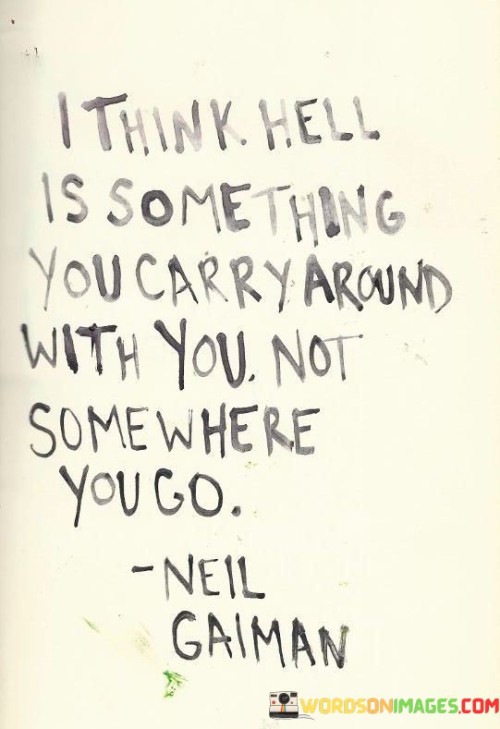 I THINK HELL
IS SOMETHING
YOU CARRY AROUND
WITH YOU. NOT
SOMEWHERE
YOU GO.
-NEIL
GAIMAN
WORDSONIMAGES.COM